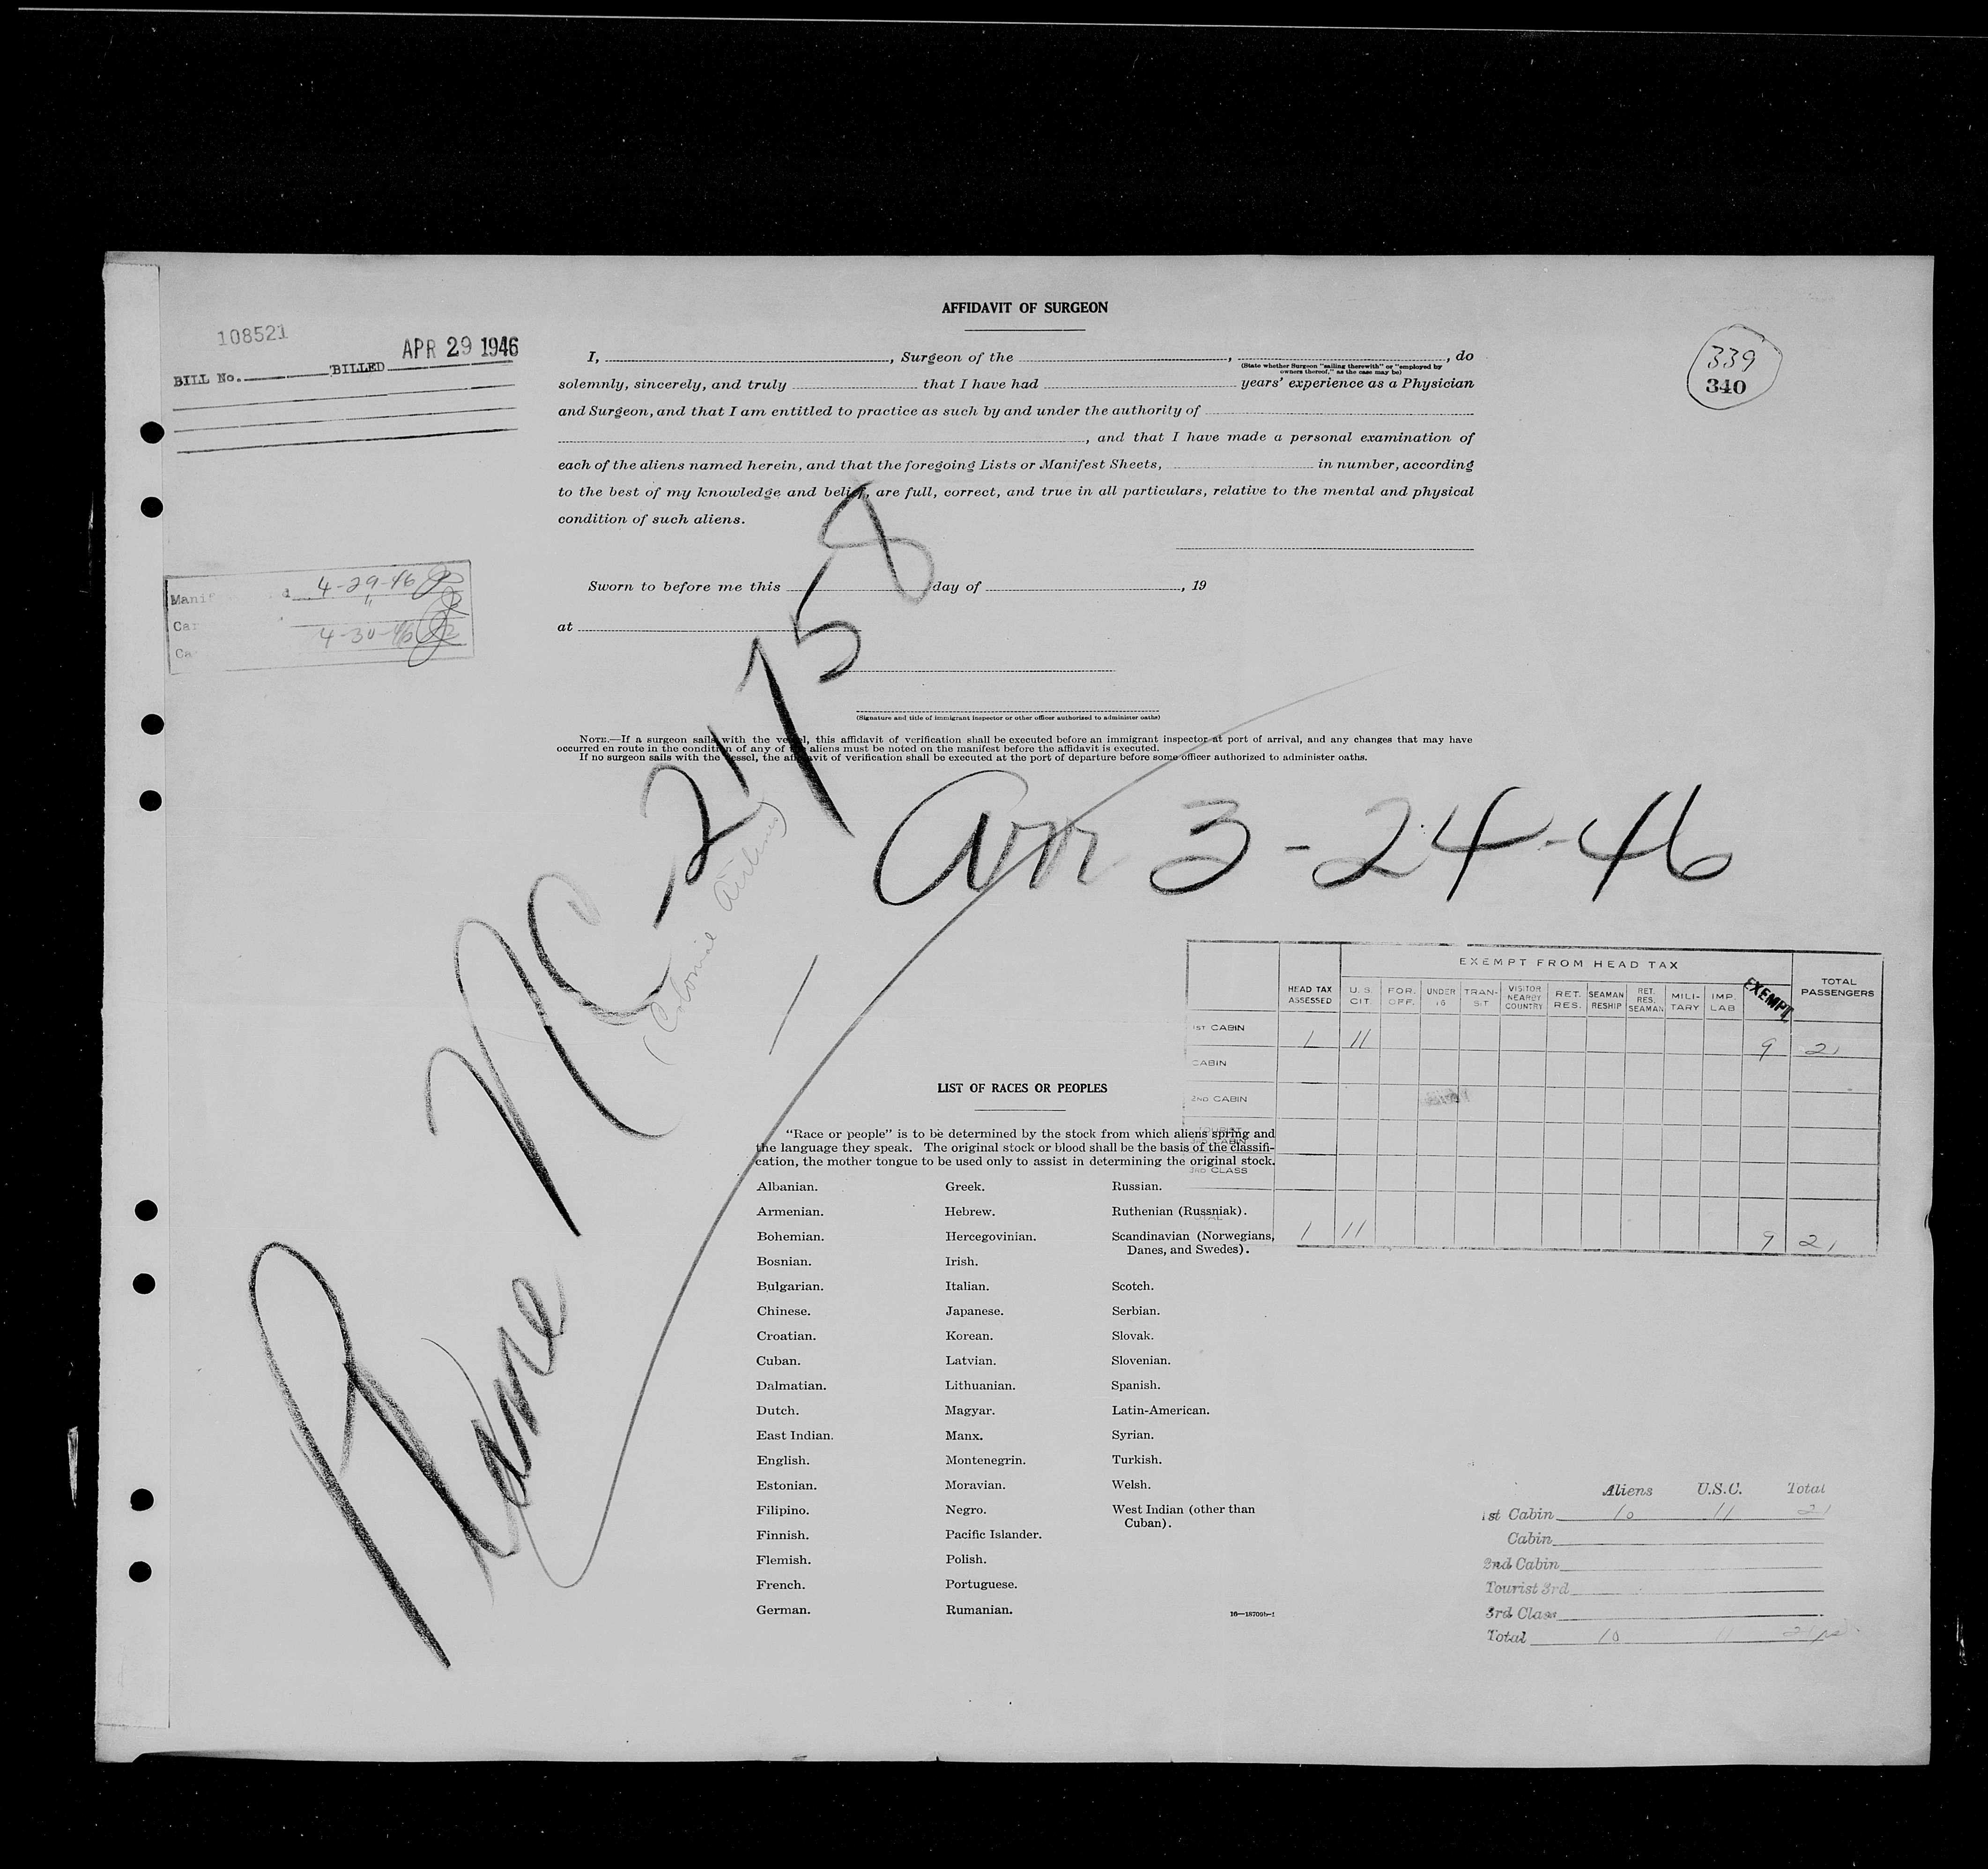 AFFIDAVIT OF SURGEON
108521
BILL No. BILLED APR 29 1946
339
340
I, , Surgeon of the , , do
(State whether Surgeon "sailing therewith" or "employed by
owners thereof," as the case may be)
solemnly, sincerely, and truly that I have had years' experience as a Physician
and Surgeon, and that I am entitled to practice as such by and under the authority of
, and that I have made a personal examination of
each of the aliens named herein, and that the foregoing Lists or Manifest Sheets, in number, according
to the best of my knowledge and belief, are full, correct, and true in all particulars, relative to the mental and physical
condition of such aliens.
4-29-46
"
4-30-46
Sworn to before me this day of , 19
at
(Signature and title of immigrant inspector or other officer authorized to administer oaths)
NOTE.—If a surgeon sails with the vessel, this affidavit of verification shall be executed before an immigrant inspector at port of arrival, and any changes that may have
occurred en route in the condition of any of the aliens must be noted on the manifest before the affidavit is executed.
If no surgeon sails with the vessel, the affidavit of verification shall be executed at the port of departure before some officer authorized to administer oaths.
Plane NC-21758
(Colonial Airlines)
Arr 3-24-46
EXEMPT FROM HEAD TAX
HEAD TAX ASSESSED U.S. CIT. FOR. OFF. UNDER 16 TRANSIT VISITOR NEARBY COUNTRY RET. RES. SEAMAN RESHIP RET. RES. SEAMAN MILITARY IMP. LAB EXEMPT TOTAL PASSENGERS
1ST CABIN 1 11 9 21
CABIN
2ND CABIN
TOURIST
3RD CABIN
3RD CLASS
TOTAL 1 11 9 21
LIST OF RACES OR PEOPLES
"Race or people" is to be determined by the stock from which aliens spring and
the language they speak. The original stock or blood shall be the basis of the classifi-
cation, the mother tongue to be used only to assist in determining the original stock.
Albanian. Greek. Russian.
Armenian. Hebrew. Ruthenian (Russniak).
Bohemian. Hercegovinian. Scandinavian (Norwegians,
Danes, and Swedes).
Bosnian. Irish.
Bulgarian. Italian. Scotch.
Chinese. Japanese. Serbian.
Croatian. Korean. Slovak.
Cuban. Latvian. Slovenian.
Dalmatian. Lithuanian. Spanish.
Dutch. Magyar. Latin-American.
East Indian. Manx. Syrian.
English. Montenegrin. Turkish.
Estonian. Moravian. Welsh.
Filipino. Negro. West Indian (other than
Cuban).
Finnish. Pacific Islander.
Flemish. Polish.
French. Portuguese.
German. Rumanian.
16—18709b-1
Aliens U.S.C. Total
1st Cabin 10 11 21
Cabin
2nd Cabin
Tourist 3rd
3rd Class
Total 10 11 21